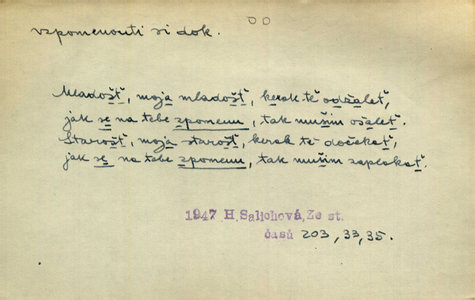 vzpomenouti si dok.
Mladošť, moja mladošť, kerak tě odžaleť,
jak se na tebe zpomenu, tak mušim ošaleť.
Starošť, moja starošť, kerak tě dočekať,
jak se na tebe zpomenu, tak mušim zaplakať.
1947 H.Salichová, Ze st.
časů 203, 33, 35.